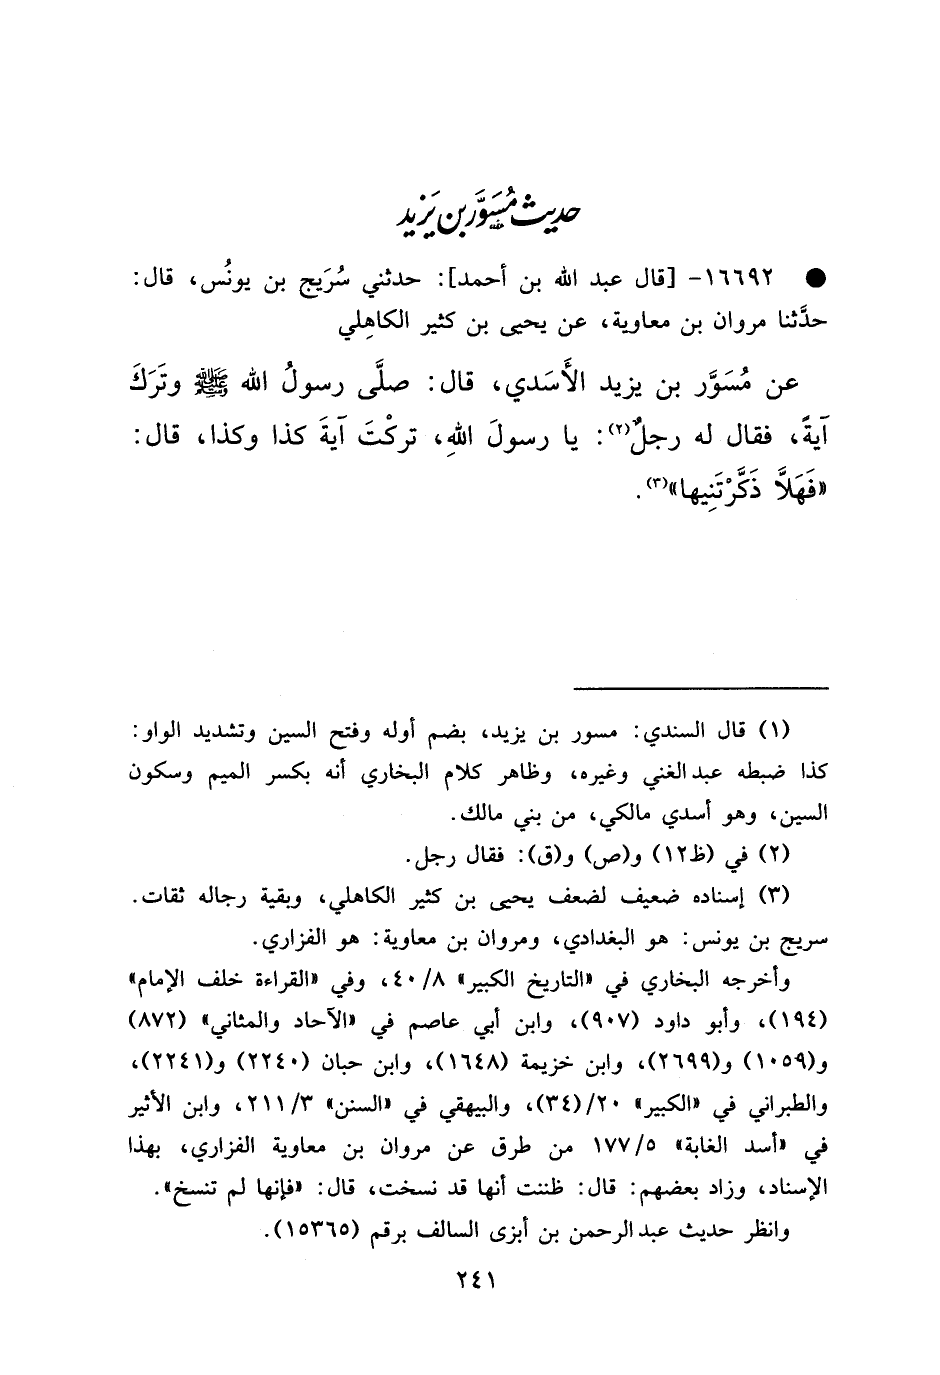 حديث مُسَوَّر بن يَزيد
● ١٦٦٩٢- [قال عبد الله بن أحمد]: حدثني سُرَيج بن يونُس، قال:
حدَّثنا مروان بن معاوية، عن يحيى بن كثير الكاهِلي
عن مُسَوَّر بن يزيد الأَسَدي، قال: صلَّى رسولُ الله ﷺ وتَرَكَ
آيةً، فقال له رجلٌ(٢): يا رسولَ اللهِ، تركْتَ آيةَ كذا وكذا، قال:
«فَهَلاَّ ذَكَّرْتَنِيها»(٣).
(١) قال السندي: مسور بن يزيد، بضم أوله وفتح السين وتشديد الواو:
كذا ضبطه عبد الغني وغيره، وظاهر كلام البخاري أنه بكسر الميم وسكون
السين، وهو أسدي مالكي، من بني مالك.
(٢) في (ظ١٢) و(ص) و(ق): فقال رجل.
(٣) إسناده ضعيف لضعف يحيى بن كثير الكاهلي، وبقية رجاله ثقات.
سريج بن يونس: هو البغدادي، ومروان بن معاوية: هو الفزاري.
وأخرجه البخاري في «التاريخ الكبير» ٤٠/٨، وفي «القراءة خلف الإمام»
(١٩٤)، وأبو داود (٩٠٧)، وابن أبي عاصم في «الآحاد والمثاني» (٨٧٢)
و(١٠٥٩) و(٢٦٩٩)، وابن خزيمة (١٦٤٨)، وابن حبان (٢٢٤٠) و(٢٢٤١)،
والطبراني في «الكبير» ٢٠/(٣٤)، والبيهقي في «السنن» ٢١١/٣، وابن الأثير
في «أسد الغابة» ١٧٧/٥ من طرق عن مروان بن معاوية الفزاري، بهذا
الإسناد، وزاد بعضهم: قال: ظننت أنها قد نسخت، قال: «فإنها لم تنسخ».
وانظر حديث عبد الرحمن بن أبزى السالف برقم (١٥٣٦٥).
٢٤١